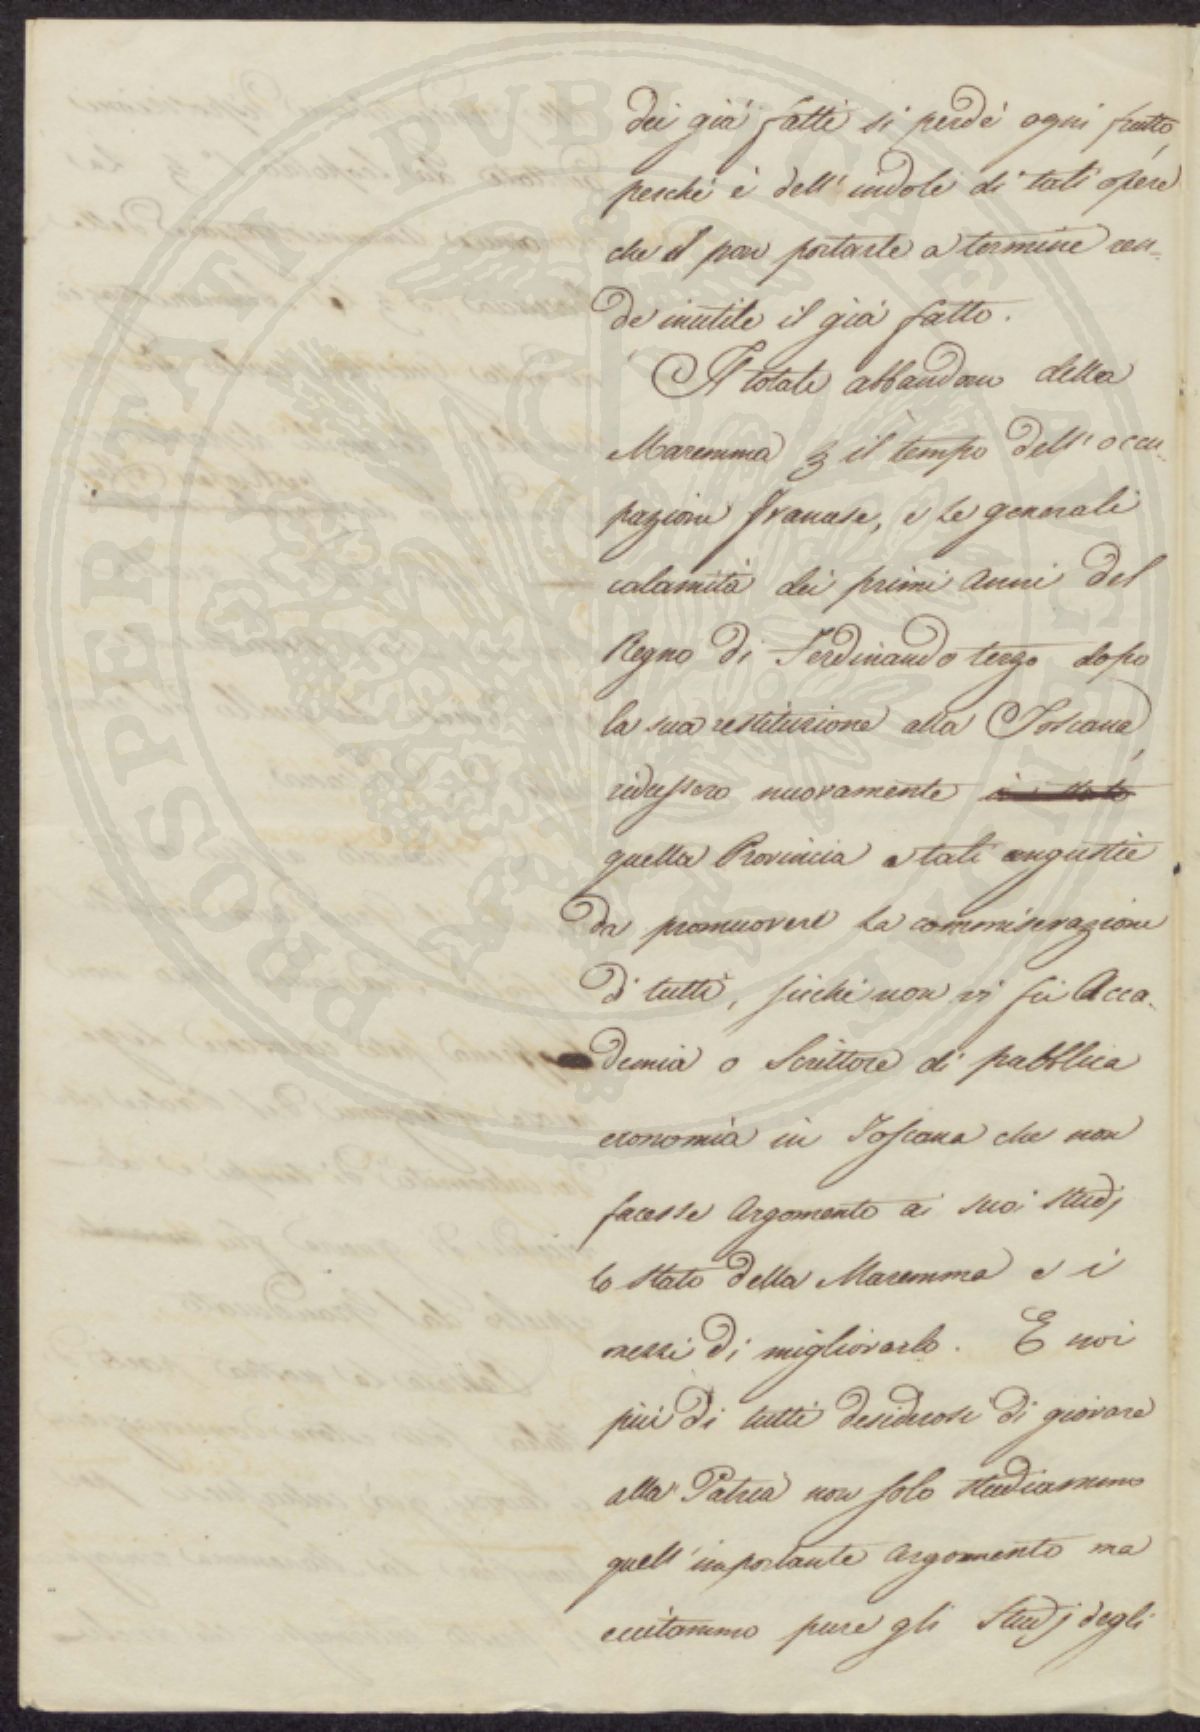 dei già fatti si perdé ogni frutto,
perché è dell'indole di tali opere
che il non portarle a termine ren-
de inutile il già fatto.
Il totale abbandono della
Maremma p il tempo dell'occu-
pazione francese, e le generali
calamità dei primi anni del
Regno di Ferdinando terzo dopo
la sua restituzione alla Toscana,
ridussero nuovamente
quella Provincia a tali angustie
da promuovere la commiserazione
di tutti, sicché non vi fu Acca-
demia o Scrittore di pubblica
economia in Toscana che non
facesse argomento ai suoi studj
lo stato della Maremma e i
mezzi di migliorarlo. E noi
più di tutti desiderosi di giovare
alla Patria non solo studiammo
quell'importante argomento ma
eccitammo pure gli studj degli
PROSPERITATI PUBLICAE AUGENDAE